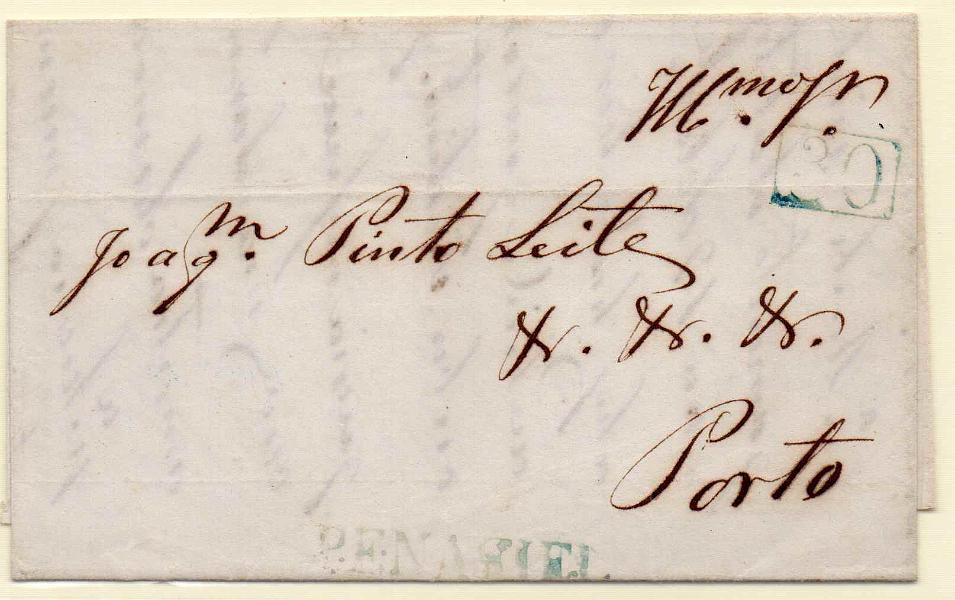 Ill.mo Sr.
30
Joaq.m Pinto Leite
&r. &r. &r.
Porto
PENAFIEL